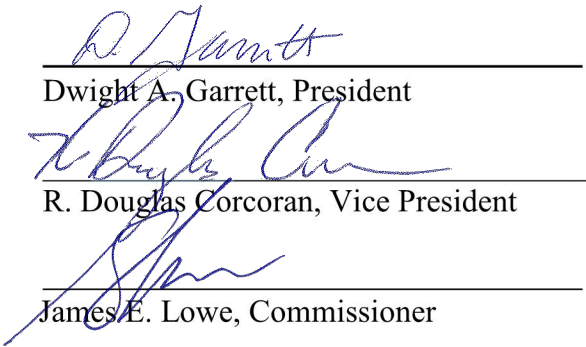 D. Garrett
Dwight A. Garrett, President
R. Douglas Corcoran, Vice President
James E. Lowe, Commissioner